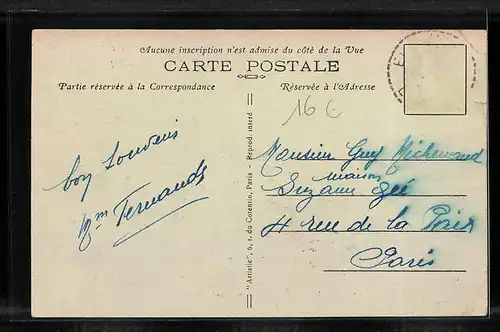 Aucune inscription n'est admise du côté de la Vue
CARTE POSTALE
Partie réservée à la Correspondance
Réservée à l'Adresse
16 €
bon Souvenir
Fernande
"Artistic", 6, r. du Cotentin, Paris - Reprod. interd
Monsieur Guy Michemand
maison
Suzanne
4 rue de la Paix
Paris